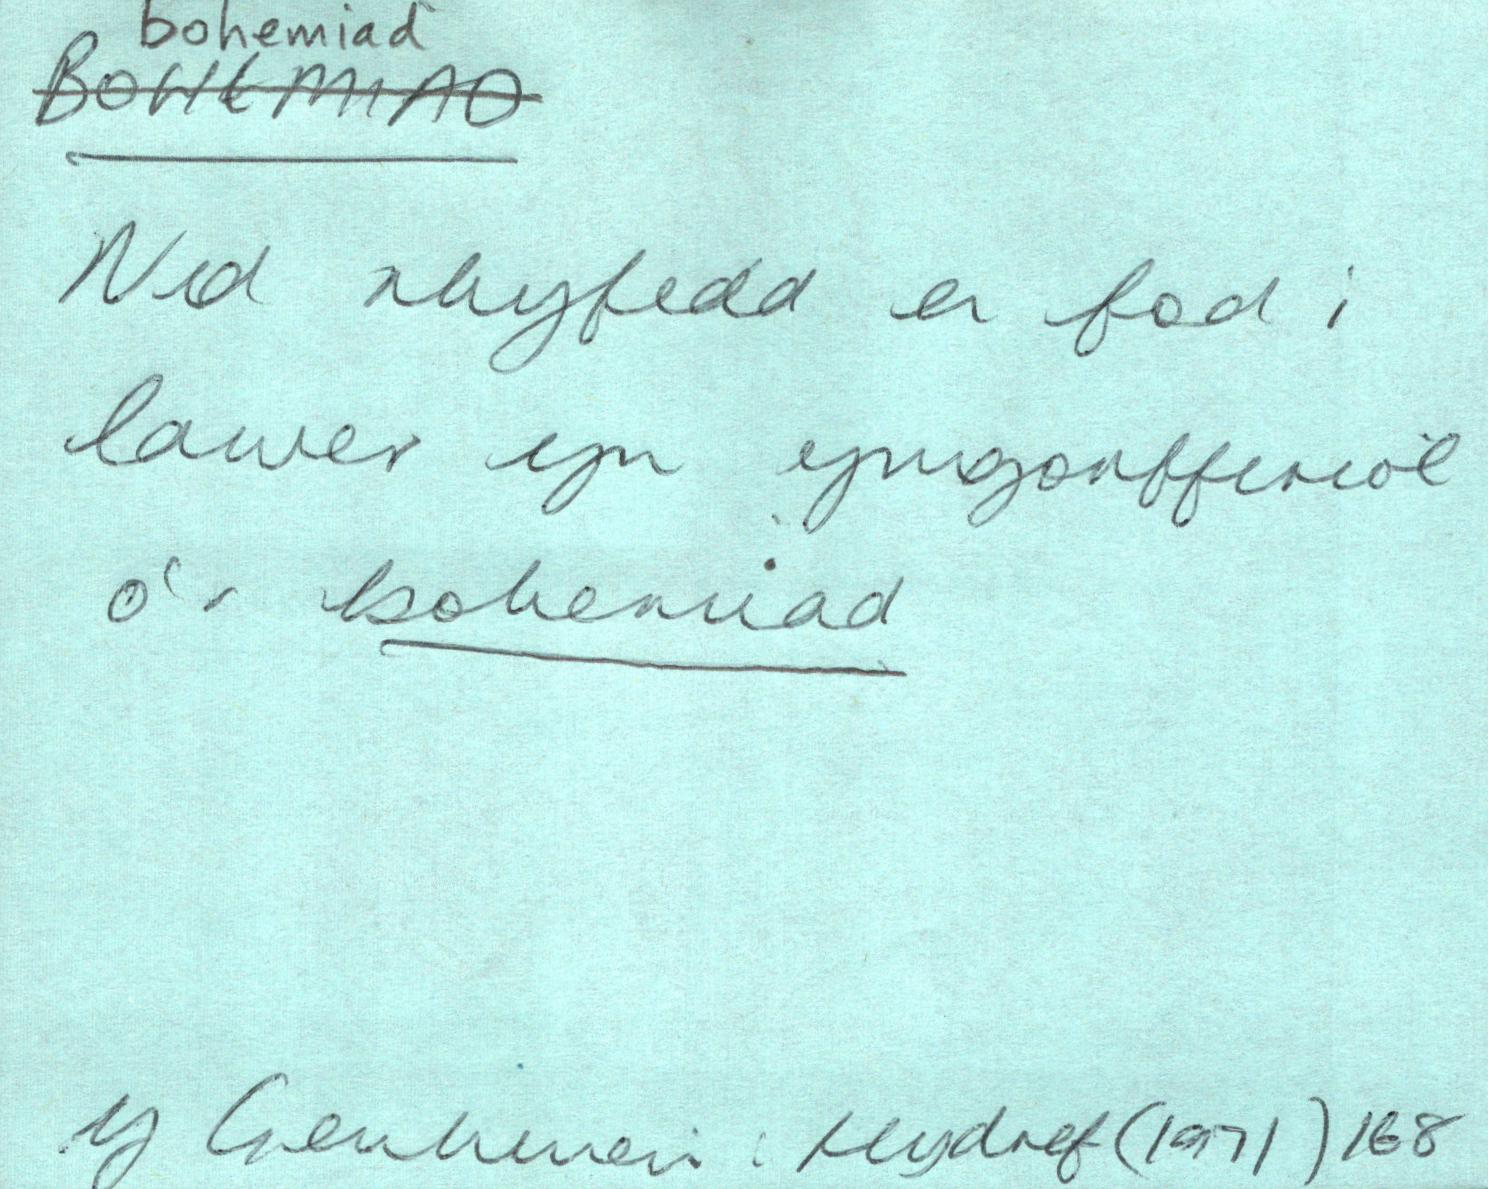 bohemiad
BOHEMIAD
Nid rhyfedd er fod i
lawer yn ymgorfforiol
o'r bohemiad
Y Genhinen : Hydref (1971) 168